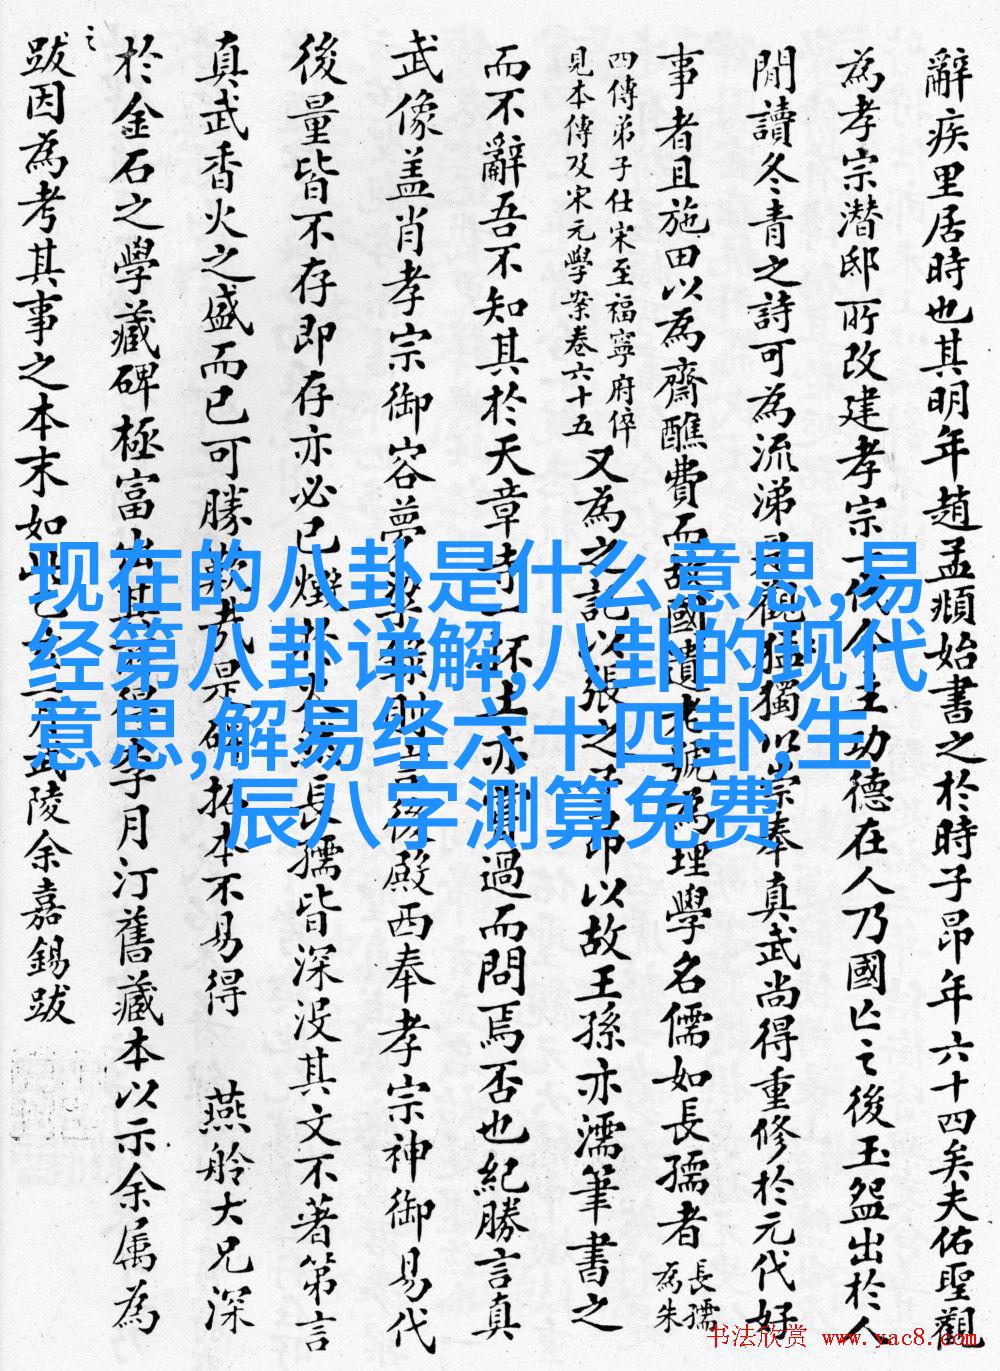 辭疾里居時也其明年趙孟頫始書之於時子昂年六十四矣夫佑聖觀
為孝宗潛邸所改建孝宗一代令主功德在人乃國亡之後玉盌出於人
間讀冬青之詩可為流涕
以宗奉真武尚得重修於元代好
事者且施田以為齋醮費而故國遺老號為理學名儒如長孺者
長孺
為朱
四傳弟子仕宋至福寧府倅
見本傳及宋元學案卷六十五
又為之記以張之子昂以故王孫亦濡筆書之
而不辭吾不知其於天章寺一抔土亦嘗過而問焉否也紀勝言真
武像盖肖孝宗御容夢
後殿西奉孝宗神御易代
後量皆不存即存亦必已燬於火
長孺皆深沒其文不著第言
真武香火之盛而已可勝歎哉是碑拓本不易得
燕舲大兄深
於金石之學藏碑極富出其
李月汀舊藏本以示余属為
之
跋因為考其事之本末如此
武陵余嘉錫跋
现在的八卦是什么意思,易
经第八卦详解,八卦的现代
意思,解易经六十四卦,生
辰八字测算免费
书法欣赏 www.yac8.com